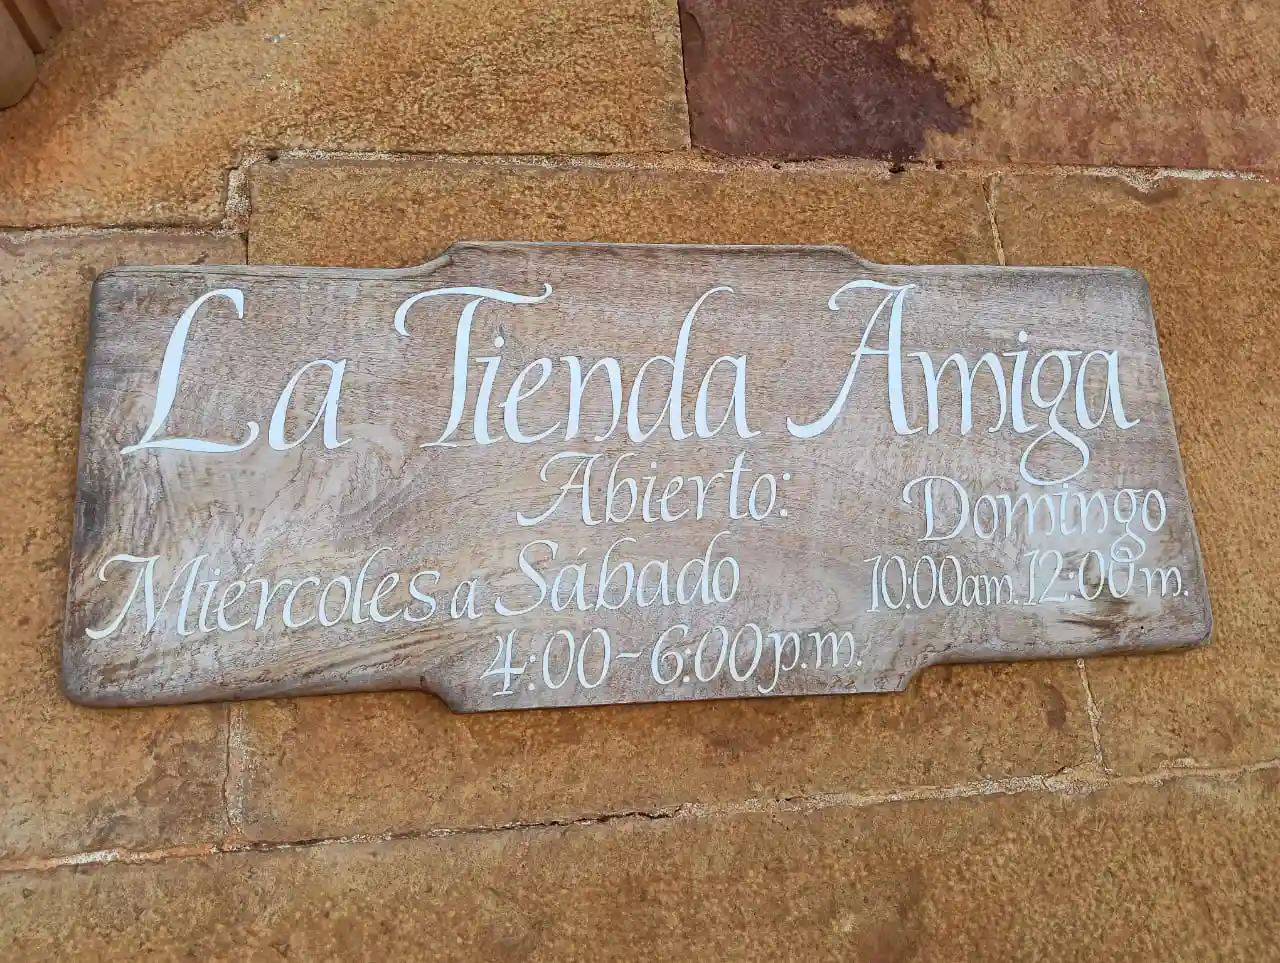 La Tienda Amiga
Abierto:
Miércoles a Sábado
4:00-6:00p.m.
Domingo
10:00am. 12:00m.